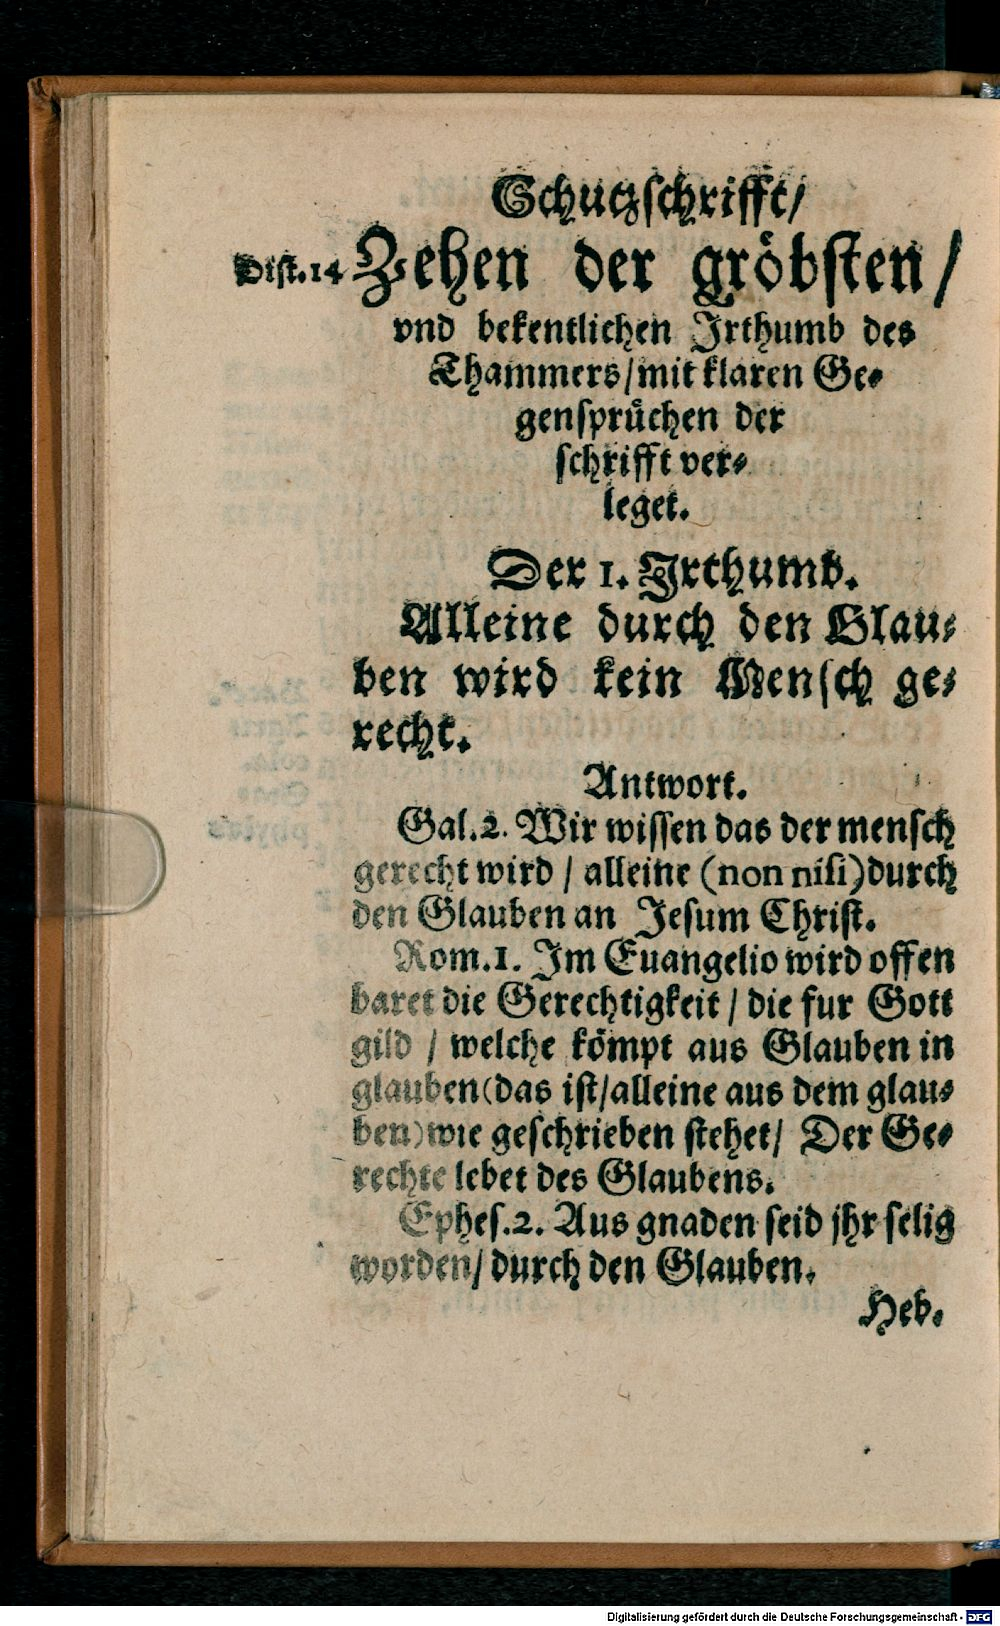 Schutzschrifft/
Dist.14 Zehen der gröbsten/
vnd bekentlichen Irthumb des
Thammers/mit klaren Ge⸗
gensprüchen der
schrifft ver⸗
leget.
Der 1. Irthumb.
Alleine durch den Glau⸗
ben wird kein Mensch ge⸗
recht.
Antwort.
Gal.2. Wir wissen das der mensch
gerecht wird / alleine (non nisi) durch
den Glauben an Jesum Christ.
Rom.1. Im Euangelio wird offen
baret die Gerechtigkeit / die fur Gott
gild / welche kömpt aus Glauben in
glauben (das ist/alleine aus dem glau⸗
ben) wie geschrieben stehet/ Der Ge⸗
rechte lebet des Glaubens.
Ephes.2. Aus gnaden seid jhr selig
worden/ durch den Glauben.
Heb.
Digitalisierung gefördert durch die Deutsche Forschungsgemeinschaft - DFG